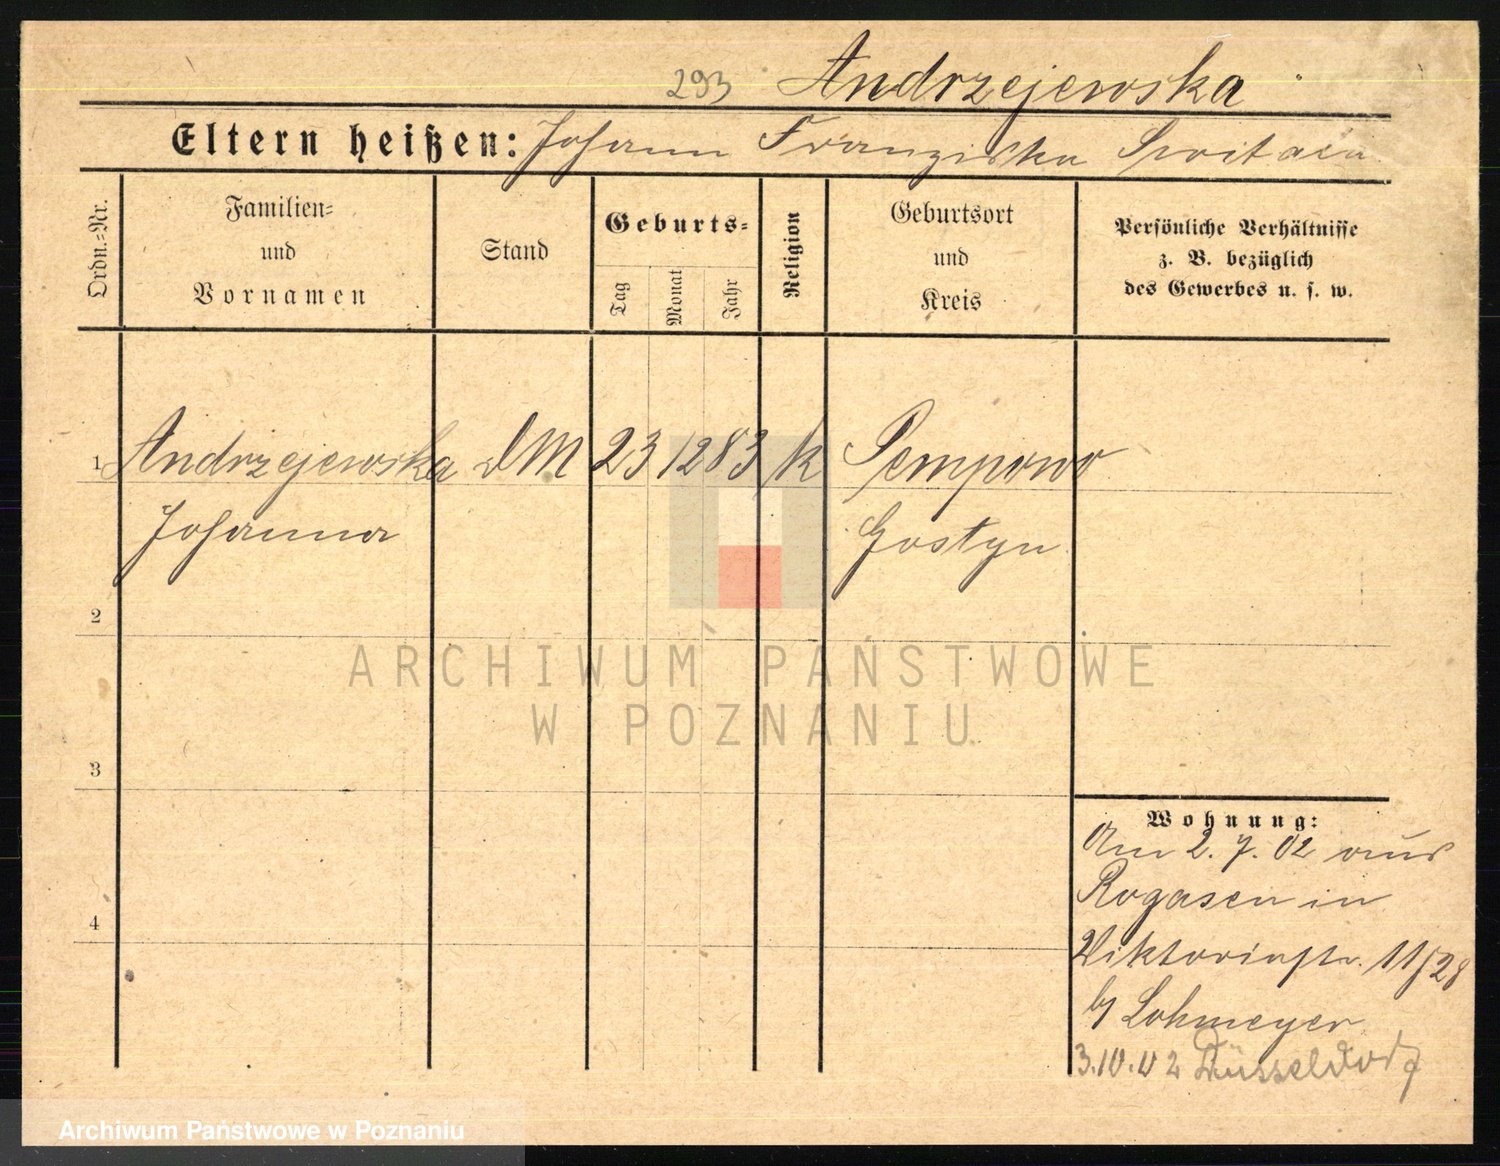 293 Andrzejewska
Eltern heißen: Johann Franziska
Ordn.-Nr.
Familien-
und
Vornamen
Stand
Geburts-
Tag
Monat
Jahr
Religion
Geburtsort
und
Kreis
Persönliche Verhältnisse
z. B. bezüglich
des Gewerbes u. s. w.
1 Andrzejewska DM 23 12 83 k Pempowo
Johanna Gostyn
2
3
4
ARCHIWUM PAŃSTWOWE
W POZNANIU
Wohnung:
Am 2. 7. 02 aus
Rogasen in
Viktoriastr. 11/28
b/ Lohmeyer
3.10.02 Düsseldorf
Archiwum Państwowe w Poznaniu